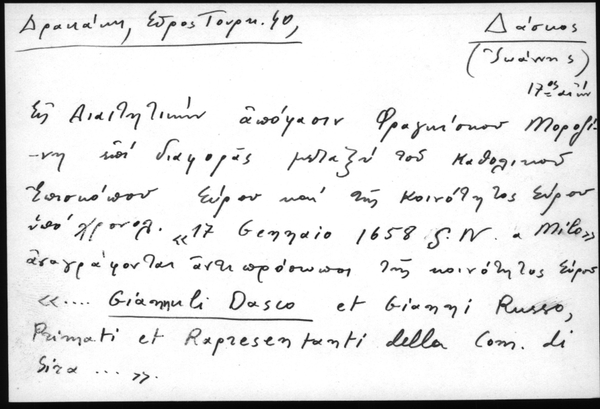 Δρακάκη, Σῦρος Τουρκ. 40,
Δάσκος
(Ἰωάννης)
17ος αἰών
Εἰς Διαιτητικήν ἀπόφασιν Φραγκίσκου Μοροζί-
-νη ἐπί διαφορᾶς μεταξύ τοῦ καθολικοῦ
Ἐπισκόπου Σύρου καί τῆς Κοινότητος Σύρου
ὑπό χρονολ. «17 Gennaio 1658 S. N. a Milo»
ἀναγράφονται ἀντιπρόσωποι τῆς κοινότητος Σύρου
«.... Giannuli Dasco et Gianni Russo,
Primati et Rapresentanti della Com. di
Sira ... ».